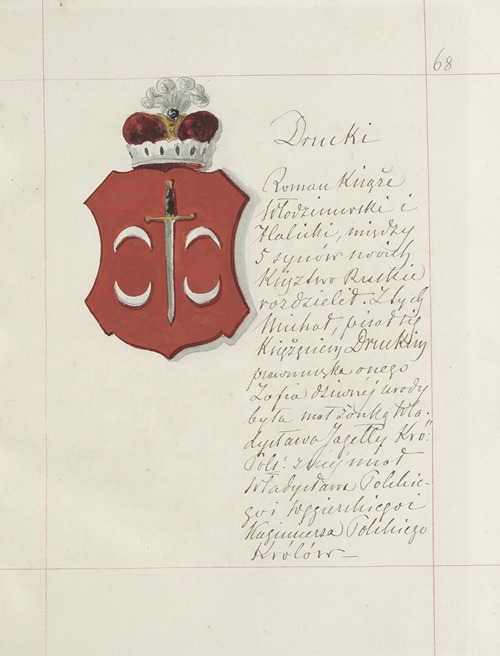 68
Drucki
Roman Książe
Włodzimirski i
Halicki, między
5 synów swoich
Księztwo Ruskie
rozdzielił. Z tych
Michał, pisał się
Książęciem Druckim
prawnuczka onego
Zofia dziwnej urody
była małżonką Wła-
dysława Jagełły Kró:
Pols: z niej miał
Władysława Polskie-
go i Węgierskiego i
Kazimierza Polskiego
Królów —